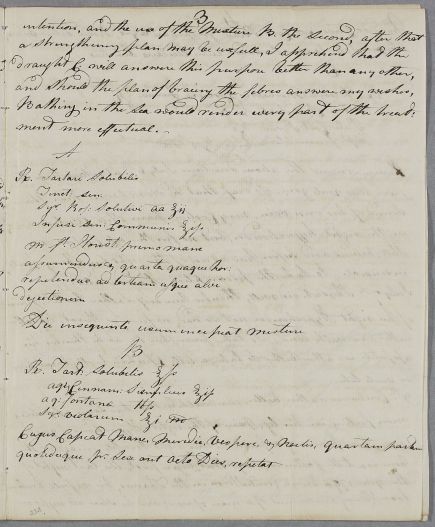 3
intention, and the use of the Mixture B. the second, after that
a strengthening plan may be usefull, I apprehend that the
draught C will answere this purpose better than any other,
and should the plan of braceing the fibres answere my wishes,
Bathing in the Sea would render every part of the treat:
ment more effectual. -
A
Rx. Tartari Solubilis
Tinct. Sen
Syr. Ros: Solutivi aa ʒij
Infusi Sen: Communis ℥iſs
m. ft. Haust. primo mane
assumendus, & quarta quaque hor:
repetendus ad tertiam usque alvi
dejectionem
Die insequente usum incipiat Mixturæ
B
Rx. Tart. Solubilis ℥ſs
aq: Cinnam: Simplicis ℥iſs
aq. Fontanæ ℔ſs
Syr. Violarum ℥j m
Cujus Capiat Mane, Meridie, Vespere, & Noctis, quartam partem
quotidieque pr. Sex aut octo Dies, repetat